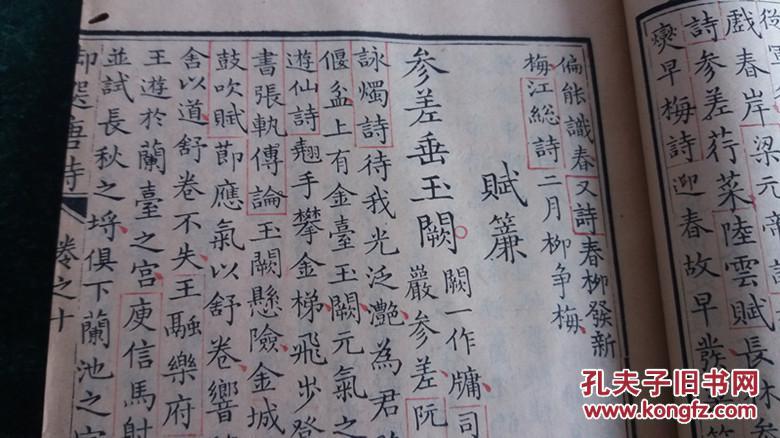 從
戲春岸梁元帝
詩參差荇菜陸雲賦長
爽早梅詩迎春故早發
偏能識春又詩春柳發新
梅江總詩二月柳爭梅
賦簾
參差垂玉闕闕一作牖司
嚴參差阮
詠燭詩待我光泛灩為君
偃盆上有金臺玉闕元氣之
遊仙詩翹手攀金梯飛步登
書張軌傳論玉闕懸險金城
鼓吹賦節應氣以舒卷響
舍以道舒卷不失王融樂府
王遊於蘭臺之宮庾信馬射
並試長秋之埒俱下蘭池之宮
御選唐詩 卷之十
孔夫子旧书网
www.kongfz.com